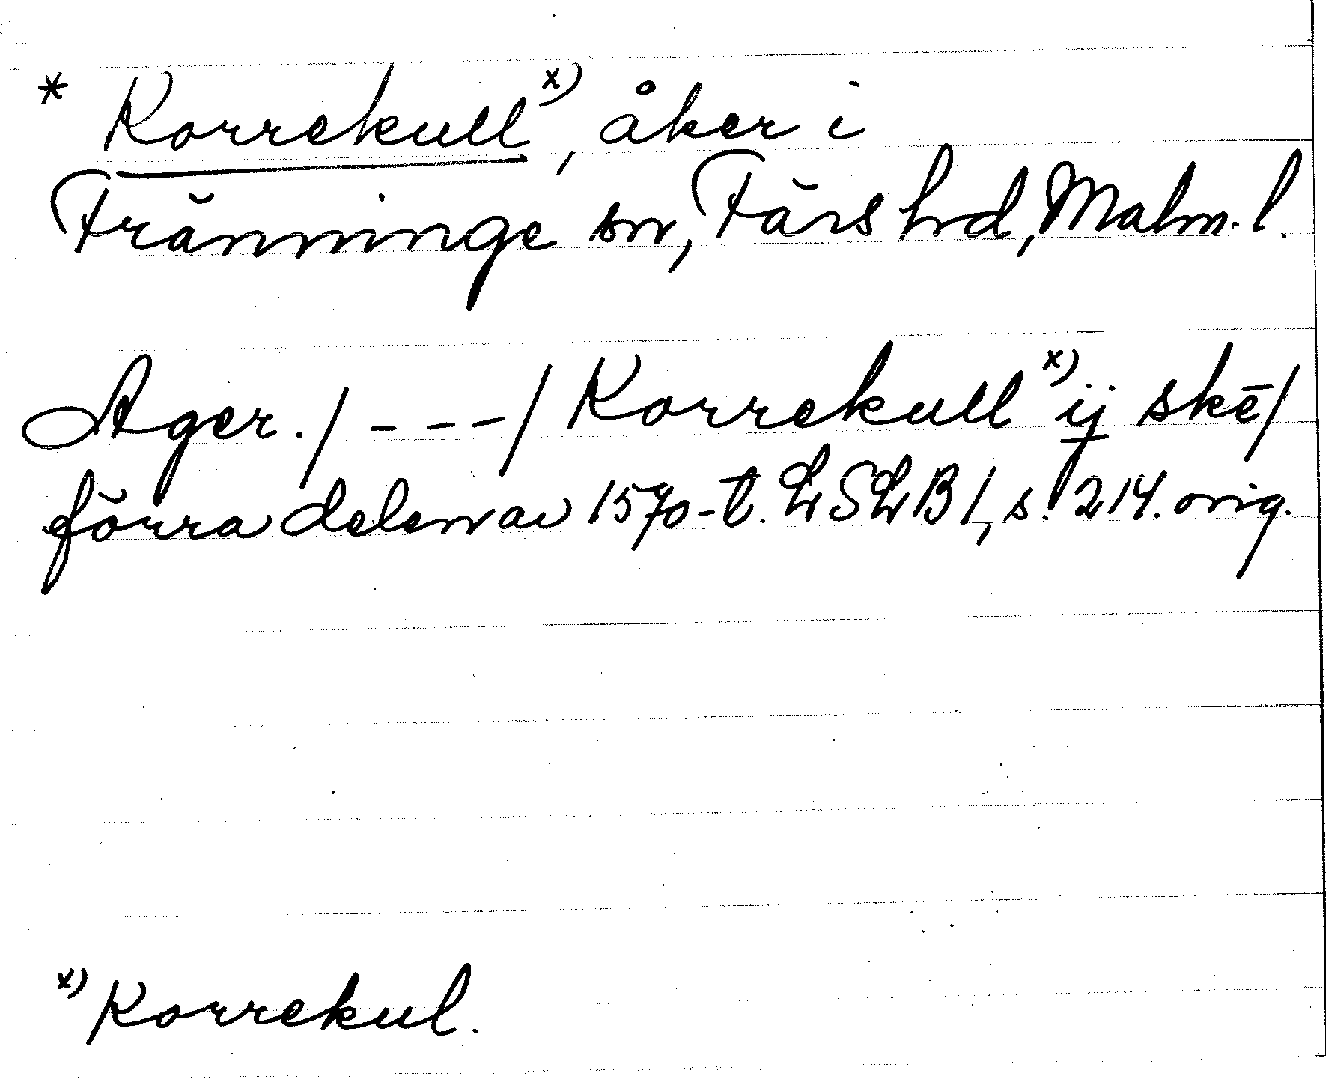 * Korrekull x), åker i
Tränninge sn, Färs hd, Malm. l.
Ager. / - - - / Korrekull x) ij skē/
förra delen av 1570-t. LSLB I, s. 214. orig.
x) Korrekul.